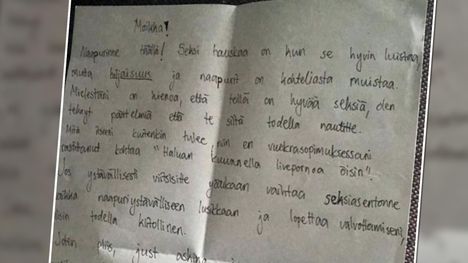 Moikka!
Naapurinne täällä! Seksi hauskaa on kun se hyvin luistaa,
mutta hiljaisuus ja naapurit on kohteliasta muistaa.
Mielestäni on hienoa, että teillä on hyvää seksiä, olen
tehnyt päätelmiä että te siitä todella nautitte.
Mitä itseeni kuitenkin tulee, niin en vuokrasopimuksessani
rastittanut kohtaa "Haluan kuunnella livepornoa öisin".
Jos ystävällisesti viitsisitte yöaikaan vaihtaa seksiasentonne
vaikka naapuriystävälliseen lusikkaan ja lopettaa valvottamiseni,
olisin todella kiitollinen.
Joten pliis, just asking